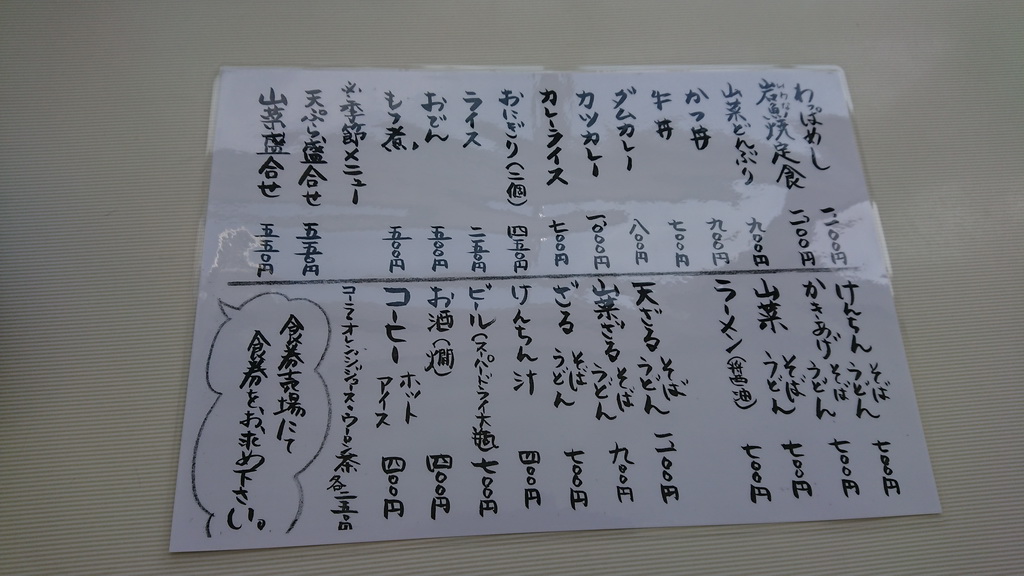 わっぱめし 一二〇〇円
岩魚焼定食 一二〇〇円
いわな
山菜どんぶり 九〇〇円
かつ丼 九〇〇円
牛丼 七〇〇円
ダムカレー 八〇〇円
カツカレー 一〇〇〇円
カレーライス 七〇〇円
おにぎり(二個) 四五〇円
ライス 二五〇円
おでん 五〇〇円
もつ煮 五〇〇円
季節メニュー
天ぷら盛合せ 五五〇円
山菜盛合せ 五五〇円
けんちん そば うどん 七〇〇円
かきあげ そば うどん 七〇〇円
山菜 そば うどん 七〇〇円
ラーメン(醤油) 七〇〇円
天ざる そば うどん 一一〇〇円
山菜ざる そば うどん 九〇〇円
ざる そば うどん 七〇〇円
けんちん汁 四〇〇円
ビール(スーパードライ大瓶) 七〇〇円
お酒(燗) 四〇〇円
コーヒー ホット アイス 四〇〇円
コーラ・オレンジジュース・ウーロン茶 各二五〇円
食券売場にて
食券をお求め下さい。